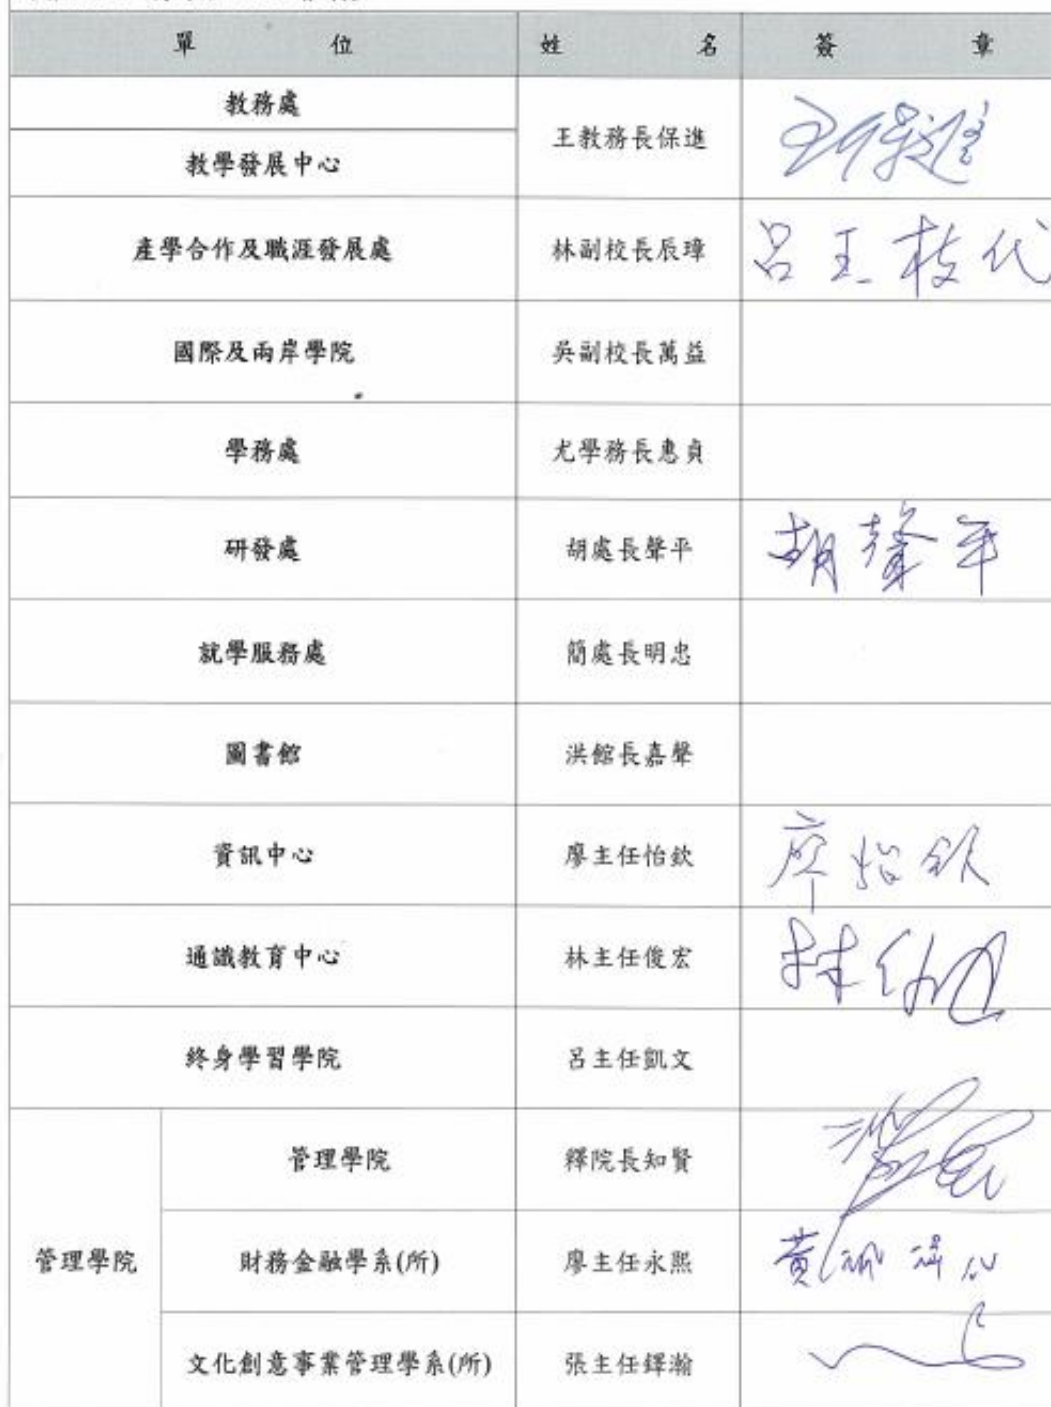 單 位 姓 名 簽 章
教務處 王教務長保進 王保進
教學發展中心
產學合作及職涯發展處 林副校長辰璋 呂玉枝代
國際及兩岸學院 吳副校長萬益
學務處 尤學務長惠貞
研發處 胡處長聲平 胡聲平
就學服務處 簡處長明忠
圖書館 洪館長嘉聲
資訊中心 廖主任怡欽 廖怡欽
通識教育中心 林主任俊宏 林
終身學習學院 呂主任凱文
管理學院 釋院長知賢
管理學院 財務金融學系(所) 廖主任永熙 黃
文化創意事業管理學系(所) 張主任鐸瀚